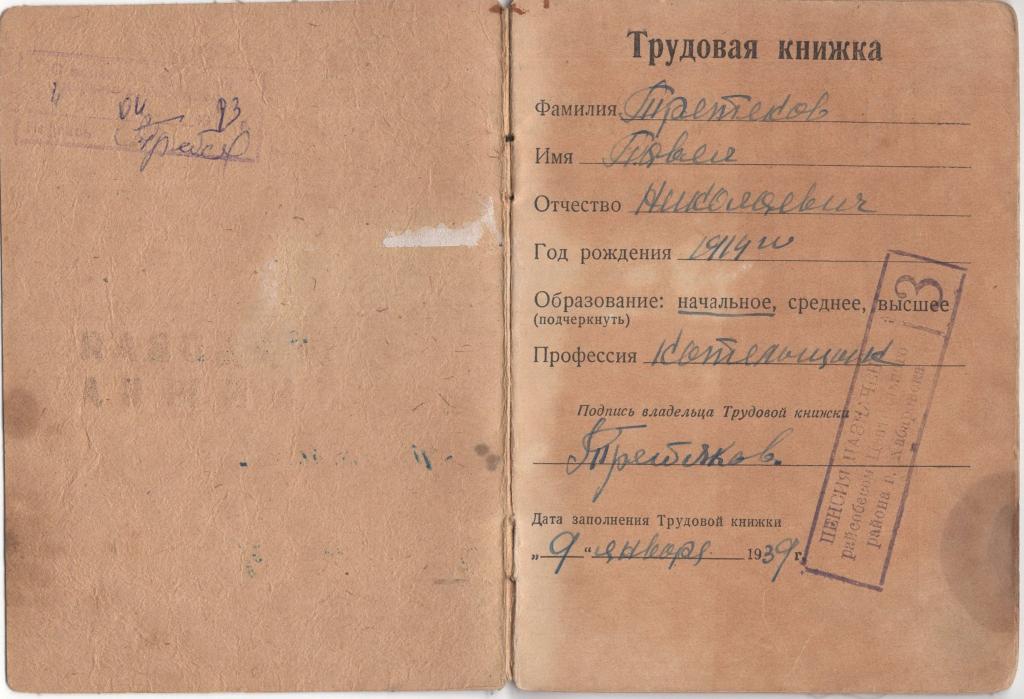 04 93
Трудовая книжка
Фамилия Третеков
Имя Павел
Отчество Николаевич
Год рождения 1914
Образование: начальное, среднее, высшее
(подчеркнуть)
Профессия Котельщик
Подпись владельца Трудовой книжки
Третьяков.
Дата заполнения Трудовой книжки
„ 9 “ января 1939 г.
ПЕНСИЯ НАЗНАЧЕНА
райсобесом Центрального
района г. Хабаровска
3